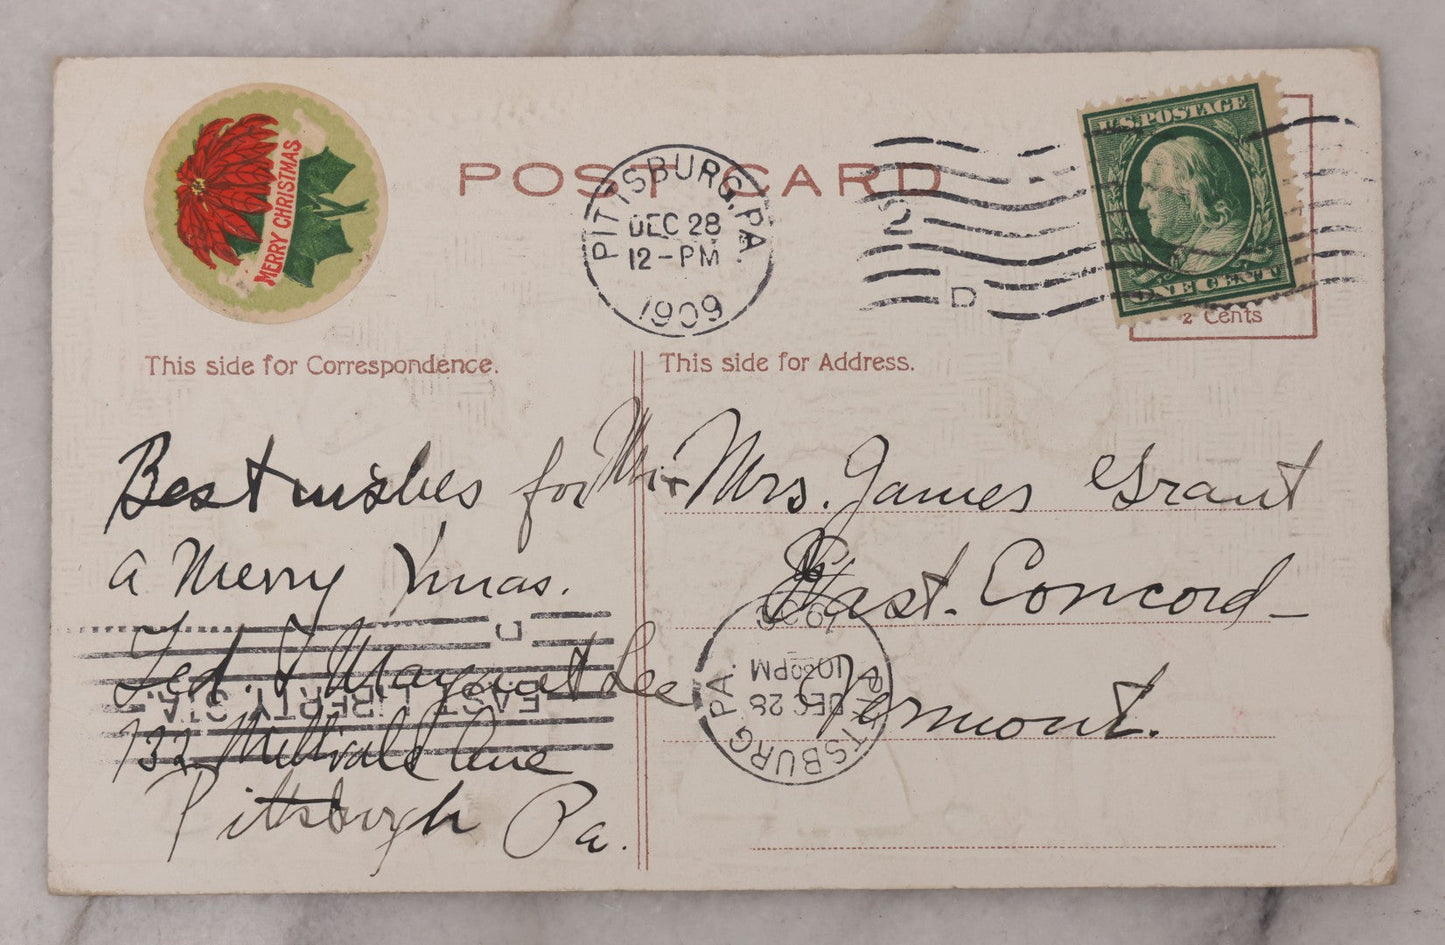 MERRY CHRISTMAS
POST CARD
PITTSBURG, PA.
DEC 28
12-PM
1909
2
D
U.S. POSTAGE
ONE CENT
2 Cents
This side for Correspondence.
This side for Address.
Best wishes for
a Merry Xmas.
Ted. & Margaret Lee
732 Ave
Pittsburgh Pa.
Mr + Mrs. James Grant
East. Concord
Vermont.
PITTSBURG, PA.
DEC 28
1030PM
1909
EAST LIBERTY STA.